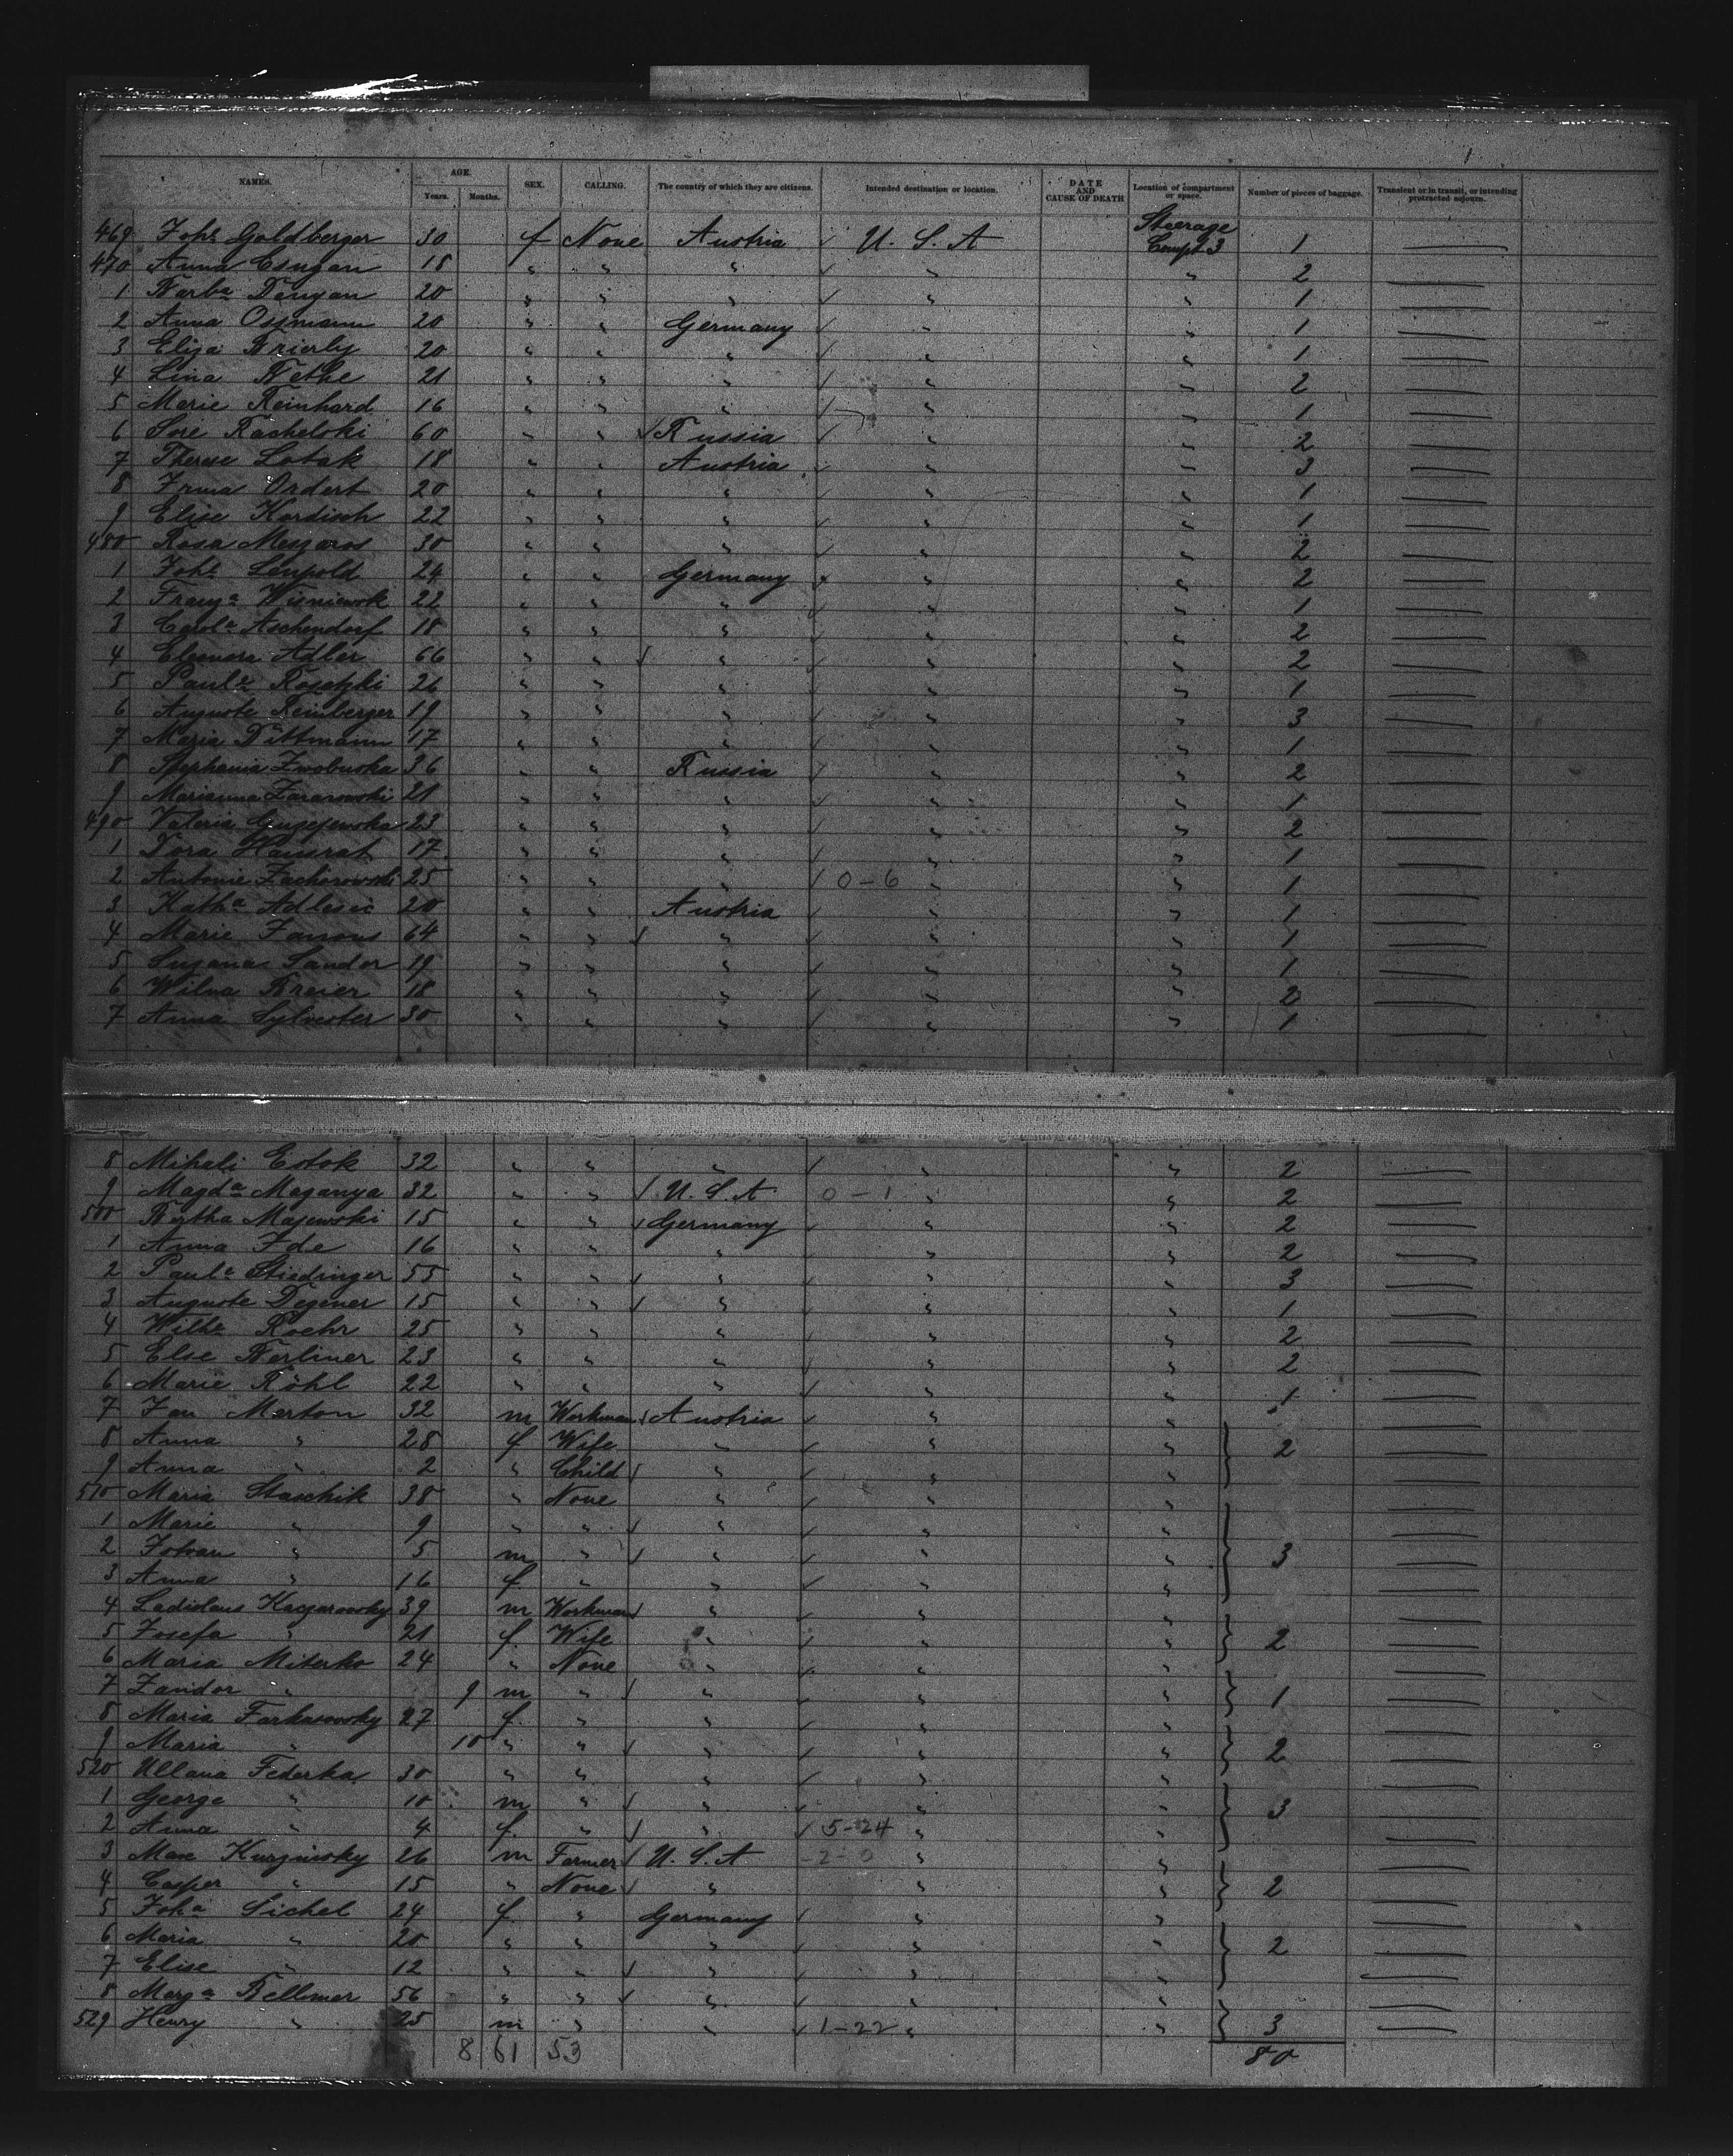 NAMES. AGE. Years. Months. SEX. CALLING. The country of which they are citizens. Intended destination or location. DATE AND CAUSE OF DEATH Location of compartment or space. Number of pieces of baggage. Transient or in transit, or intending protracted sojourn.
469 Joha Goldberger 30 f None Austria ✓ U. S. A Steerage Compt 3 1
470 Anna Csugan 18 " " " ✓ " " 2
1 Barba Dengan 20 " " " ✓ " " 1
2 Anna Ossmann 20 " " Germany ✓ " " 1
3 Eliza Brierly 20 " " " ✓ " " 1
4 Lina Bethe 21 " " " ✓ " " 2
5 Marie Reinhard 16 " " " ✓ " " 1
6 Sore Rachelski 60 " " ✓ Russia ✓ " " 2
7 Therese Latak 18 " " Austria ✓ " " 3
8 Irma Ordert 20 " " " ✓ " " 1
9 Elise Kardisch 22 " " " ✓ " " 1
480 Rosa Meszaros 30 " " " ✓ " " 2
1 Joha Leupold 24 " " Germany ✓ " " 2
2 Franza Wisniewsk 22 " " " ✓ " " 1
3 Carola Aschendorf 18 " " " ✓ " " 2
4 Eleonora Adler 66 " " ✓ " ✓ " " 2
5 Paula Rosetzki 26 " " " ✓ " " 1
6 Auguste Reinberger 19 " " " ✓ " " 3
7 Maria Dittmann 17 " " " ✓ " " 1
8 Stephania Zwoburka 36 " " Russia ✓ " " 2
9 Marianna Zararowski 21 " " " ✓ " " 1
490 Valeria Guzejewska 23 " " " ✓ " " 2
1 Dora Hausrat 17 " " " ✓ " " 1
2 Antonie Zachorowski 25 " " " ✓ 0-6 " " 1
3 Katha Adlesic 20 " " Austria ✓ " " 1
4 Marie Janous 64 " " ✓ " ✓ " " 1
5 Susana Sandor 19 " " " ✓ " " 1
6 Wilna Breier 18 " " " ✓ " " 2
7 Anna Sylvester 30 " " " ✓ " " 1
8 Mihali Estok 32 " " " ✓ " " 2
9 Magda Maganya 32 " " ✓ U. S. A 0-1 " " 2
500 Bertha Majewski 15 " " ✓ Germany ✓ " " 2
1 Anna Ide 16 " " " ✓ " " 2
2 Paula Stiedinger 55 " " ✓ " ✓ " " 3
3 Auguste Degener 15 " " ✓ " ✓ " " 1
4 Wilha Roehr 25 " " " ✓ " " 2
5 Else Berliner 23 " " " ✓ " " 2
6 Marie Röhl 22 " " " ✓ " " 1
7 Jan Merton 32 m Workman ✓ Austria ✓ " "
8 Anna " 28 f Wife " ✓ " " 2
9 Anna " 2 " Child ✓ " ✓ " "
510 Maria Staschik 38 " None " ✓ " "
1 Marie " 9 " " ✓ " ✓ " "
2 Istvan " 5 m " ✓ " ✓ " " 3
3 Anna " 16 f " " ✓ " "
4 Ladislaus Kaczarowsky 39 m Workman ✓ " ✓ " "
5 Josefa " 21 f Wife " ✓ " " 2
6 Maria Miterko 24 " None " ✓ " "
7 Zandor " 9 m " ✓ " ✓ " " 1
8 Maria Farkasovsky 27 f " " ✓ " "
9 Maria " 10 " " ✓ " ✓ " " 2
520 Ullana Federka 30 " " " ✓ " "
1 George " 10 m " ✓ " ✓ " " 3
2 Anna " 4 f " ✓ " ✓ 5-24 " "
3 Max Kurzinsky 26 m Farmer ✓ U. S. A 2-0 " "
4 Casper " 15 " None ✓ " " " 2
5 Joha Sichel 24 f " Germany ✓ " "
6 Maria " 20 " " " ✓ " " 2
7 Elise " 12 " " ✓ " ✓ " "
8 Marga Bellmer 56 " " ✓ " ✓ " "
529 Henry " 25 m " " ✓ 1-22 " " 3
8 61 53 80